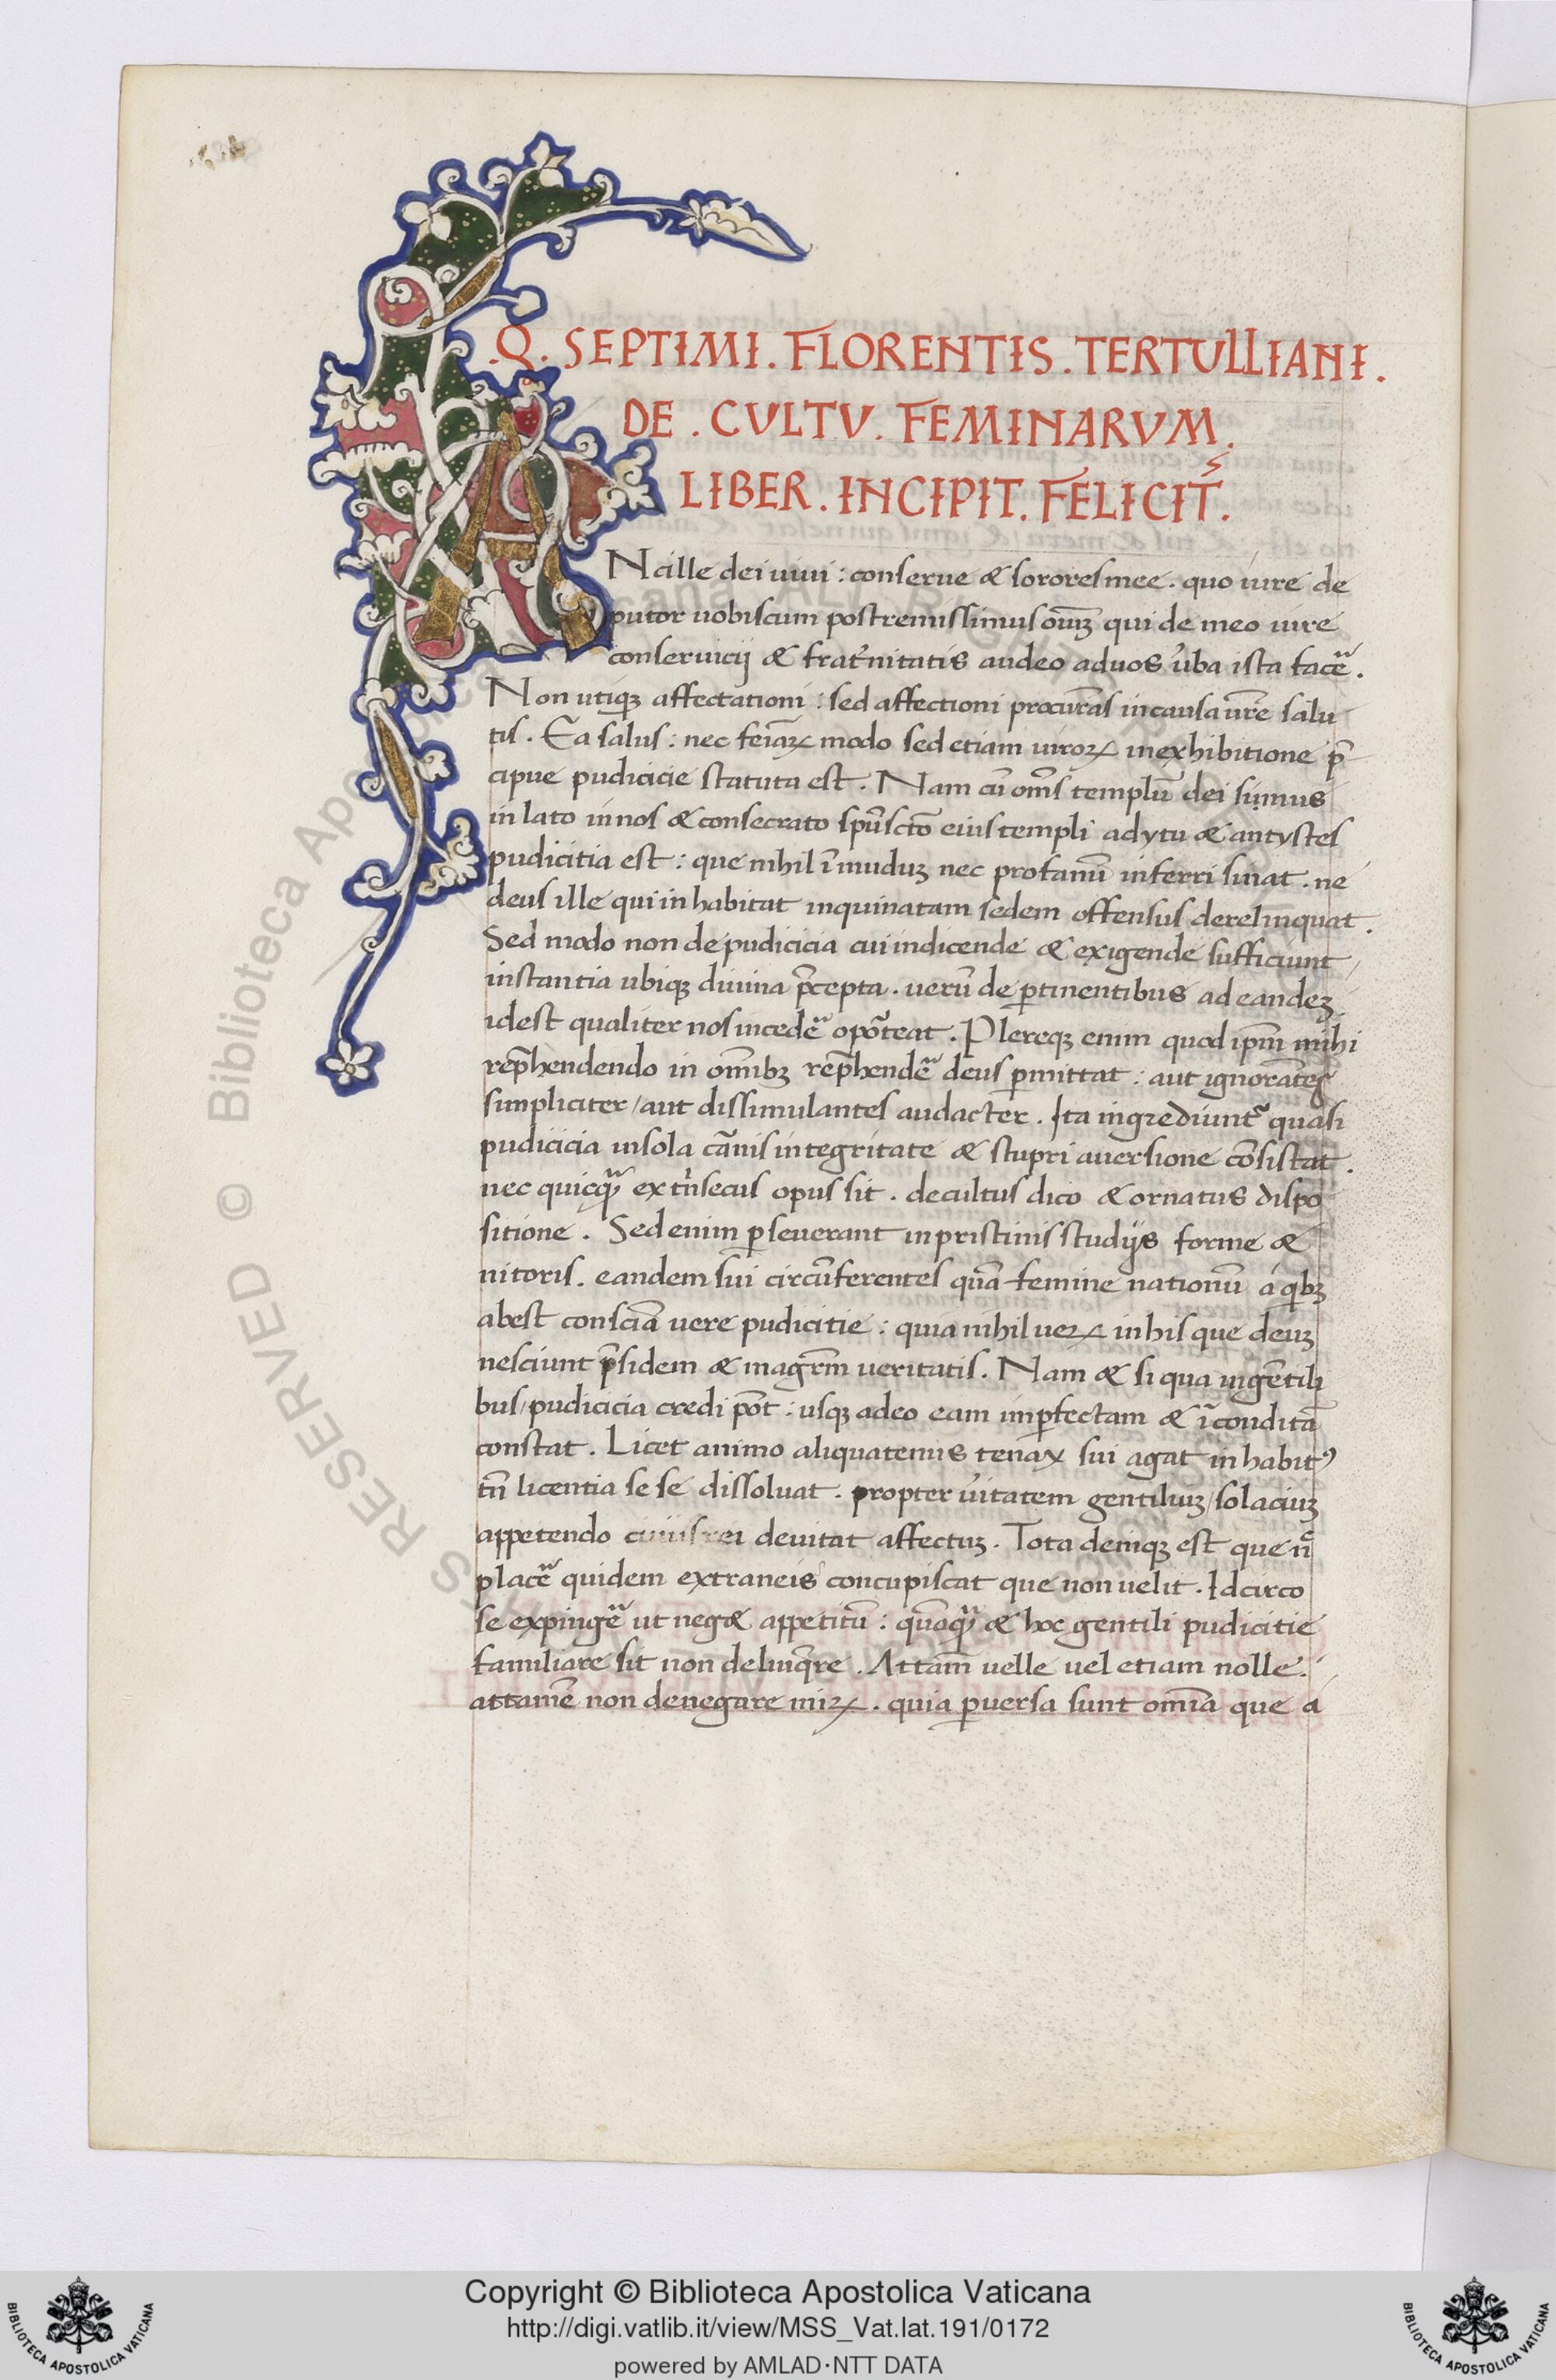 .Q. SEPTIMI. FLORENTIS. TERTULLIANI.
DE. CVLTV. FEMINARVM.
LIBER. INCIPIT. FELICIT̄.
ANcille dei uiui: conserue & sorores mee. quo iure de
putor uobiscum postremissimus oīuꝫ qui de meo iure
conseruicij & frat̄nitatis audeo ad uos ūba ista facē.
Non utiqꝫ affectationi: sed affectioni procurās in causa ūre salu
tis. Ea salus: nec feiāꝝ modo sed etiam uiroꝝ in exhibitione p̄
cipue pudicicie statuta est. Nam cū om̄s templū dei sumus
in lato in nos & consecrato spū sctō eius templi adytu & antystes
pudicitia est: que nihil īmuduꝫ nec profanū inferri sinat. ne
deus ille qui in habitat inquinatam sedem offensus derelinquat.
Sed modo non de pudicicia cui indicende & exigende sufficiunt
instantia ubiqꝫ diuina p̄cepta. uerū de ꝑtinentibus ad eandeꝫ
idest qualiter nos incedē opōteat. Plereqꝫ enim quod ipm̄ mihi
rep̄hendendo in om̄ibꝫ rep̄hendē deus ꝑmittat: aut ignorātes
simpliciter/aut dissimulantes audacter. Ita ingrediunt᷑ quasi
pudicicia in sola cānis integritate & stupri auersione cōsistat.
nec quicqꝫ ex t̄nsecus opus sit. de cultus dico & ornatus dispo
sitione. Sed enim ꝑseuerant in pristinis studijs forme &
nitoris. eandem sui circūferentes quā femine nationū á qͥbꝫ
abest consciā uere pudicitie: quia nihil ueꝝ in his que deuꝫ
nesciunt p̄sidem & magr̄m ueritatis. Nam & si qua in gētili
bus/pudicicia credi pōt: usqꝫ adeo eam imꝑfectam & īconditā
constat. Licet animo aliquatenus tenax sui agat in habitꝰ
tn̄ licentia se se dissoluat. propter ūitatem gentiliuꝫ/solaciuꝫ
appetendo cuius rei deuitat affectuꝫ. Tota deniqꝫ est que n̄
placē quidem extraneis concupiscat que non uelit. Idcirco
se expingē ut neg& appetitū: quāqꝫ & hoc gentili pudicitie
familiare sit non delinq̄re. Attam̄ uelle uel etiam nolle.
attamē non denegare miꝝ. quia ꝑuersa sunt om̄ia que á
Biblioteca Apostolica Vaticana ALL RIGHTS RESERVED ©
Copyright © Biblioteca Apostolica Vaticana
http://digi.vatlib.it/view/MSS_Vat.lat.191/0172
powered by AMLAD·NTT DATA
BIBLIOTECA APOSTOLICA VATICANA
BIBLIOTECA APOSTOLICA VATICANA